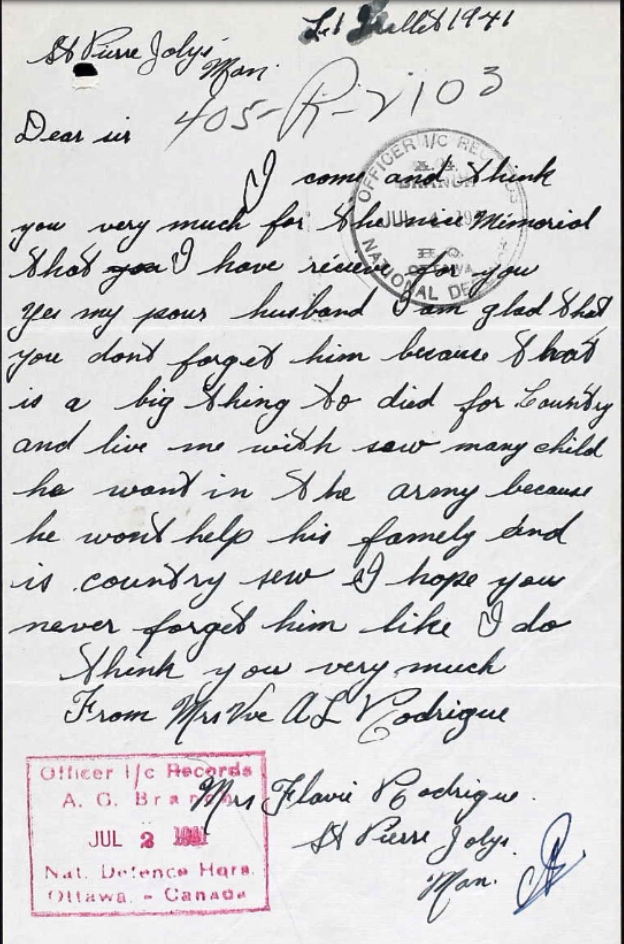 Le 1 Juillet 1941
St Pierre Jolys
Man.
405-R-2103
Dear sir
I come and think
you very much for the nice Mimorial
that you I have recieve for you
yes my pour husband I am glad that
you dont forget him because that
is a big thing to died for Country
and live me with sow many child
he want in the army because
he wont help his famely and
is country sew I hope you
never forget him like I do
think you very much
From Mrs Vve A L Rodrigue
Mrs Flavie Rodrigue.
St Pierre Jolys
Man.
OFFICER I/C RECORDS
A.G.
BRANCH
JUL
H.Q.
OTTAWA
NATIONAL DEFENCE
Officer i/c Records
A. G. Branch
JUL 2 1941
Nat. Defence Hqrs.
Ottawa. - Canada